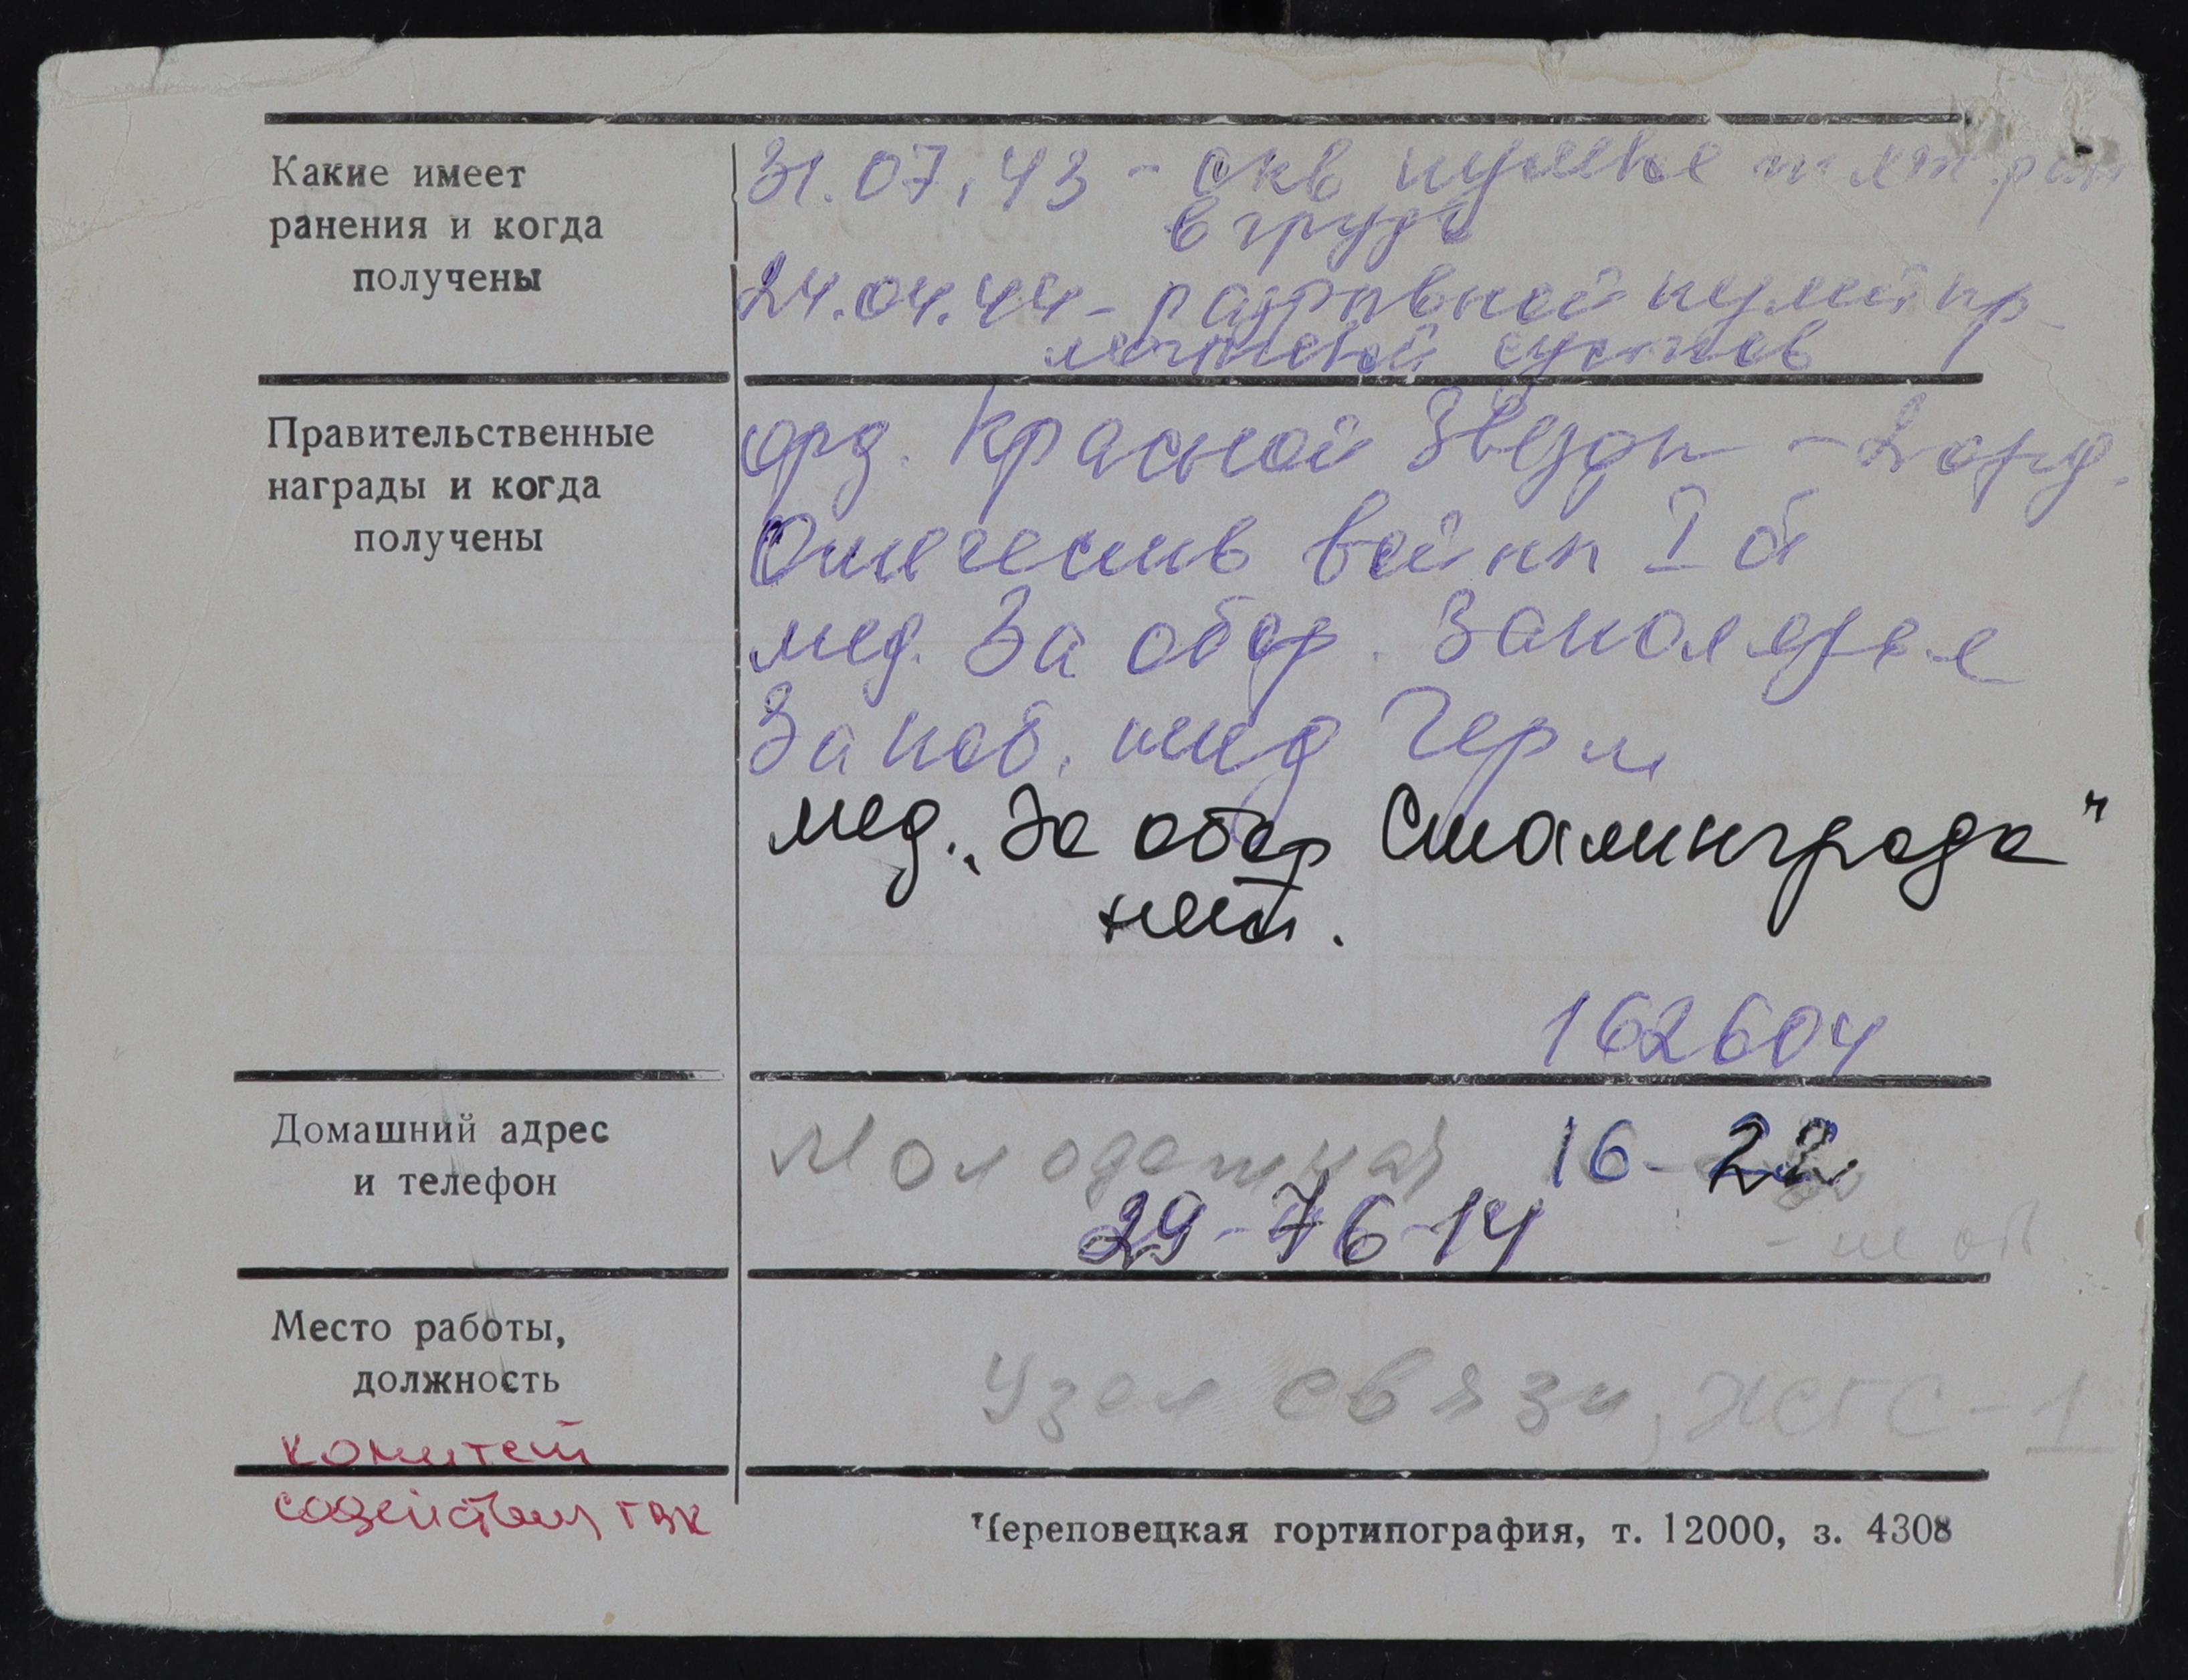 Какие имеет
ранения и когда
получены
31.07.43 - скв пулевое тяж. ран
в грудь
24.04.44 - разрывной пулей пр
локтевой сустав
Правительственные
награды и когда
получены
орд. Красной Звезды - 2 орд.
Отечеств войны I ст
мед. За обор. Заполярья
За поб. над Герм
мед. „За обор Сталинграда"
нет.
162604
Домашний адрес
и телефон
Молодежная 16-22
29-76-14
Место работы,
должность
Узел связи,
комитет
содействия ГВК
Череповецкая гортипография, т. 12000, з. 4308